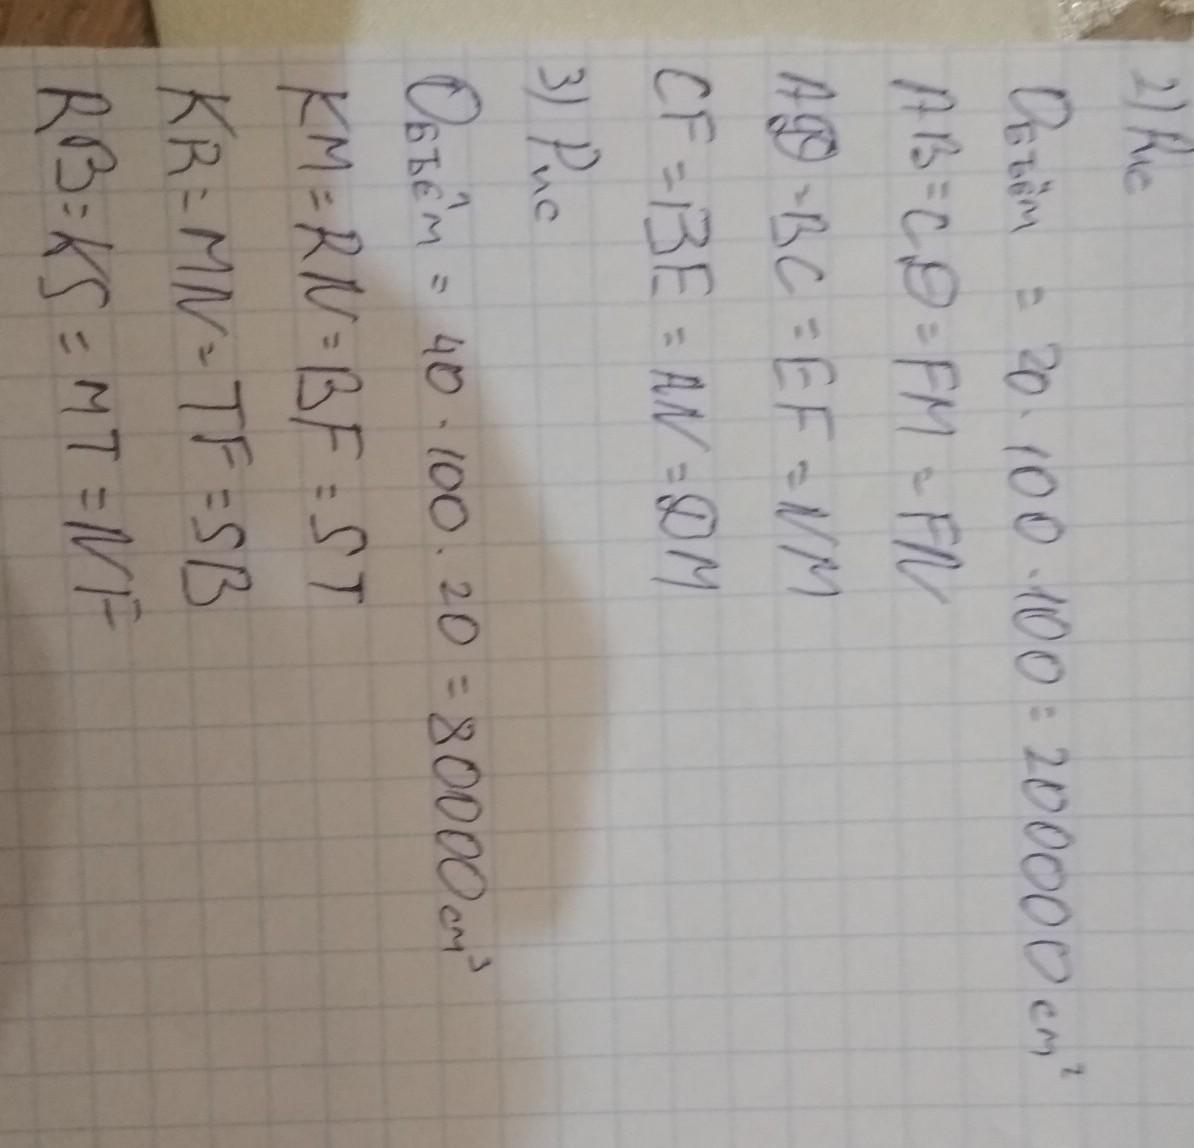 2) Рис
Объём = 20 · 100 · 100 = 200000 см²
AB = CD = FM = FN
AD = BC = EF = NM
CF = BE = AN = DM
3) Рис
Объём = 40 · 100 · 20 = 80000 см³
KM = RN = BF = ST
KR = MN = TF = SB
RB = KS = MT = NF